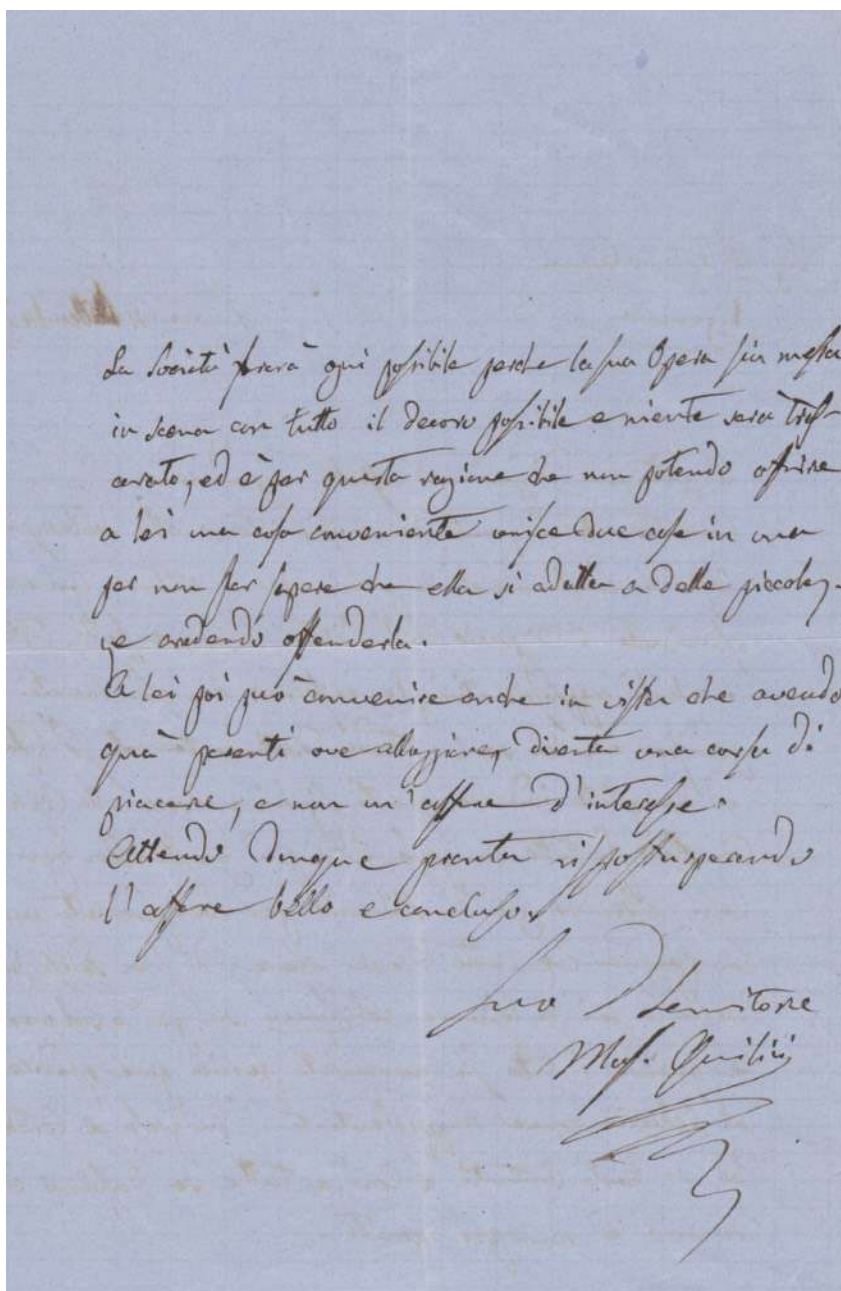 La Società farà ogni possibile perche la sua Opera sia messa
in scena con tutto il decoro possibile e niente sarà tras-
curato, ed è per questa ragione che non potendo offrire
a lei una cosa conveniente unisce due cose in una
per non far sapere che ella si adatta a delle piccolez-
ze credendo offenderla.
A lei poi può convenire anche in vista che avendo
quà parenti ove alloggiare, diventa una corsa di
piacere, e non un'affare d'interesse.
Attendo dunque pronta risposta sperando
l'affare bello e concluso.
Suo Servitore
Mas. Quilici